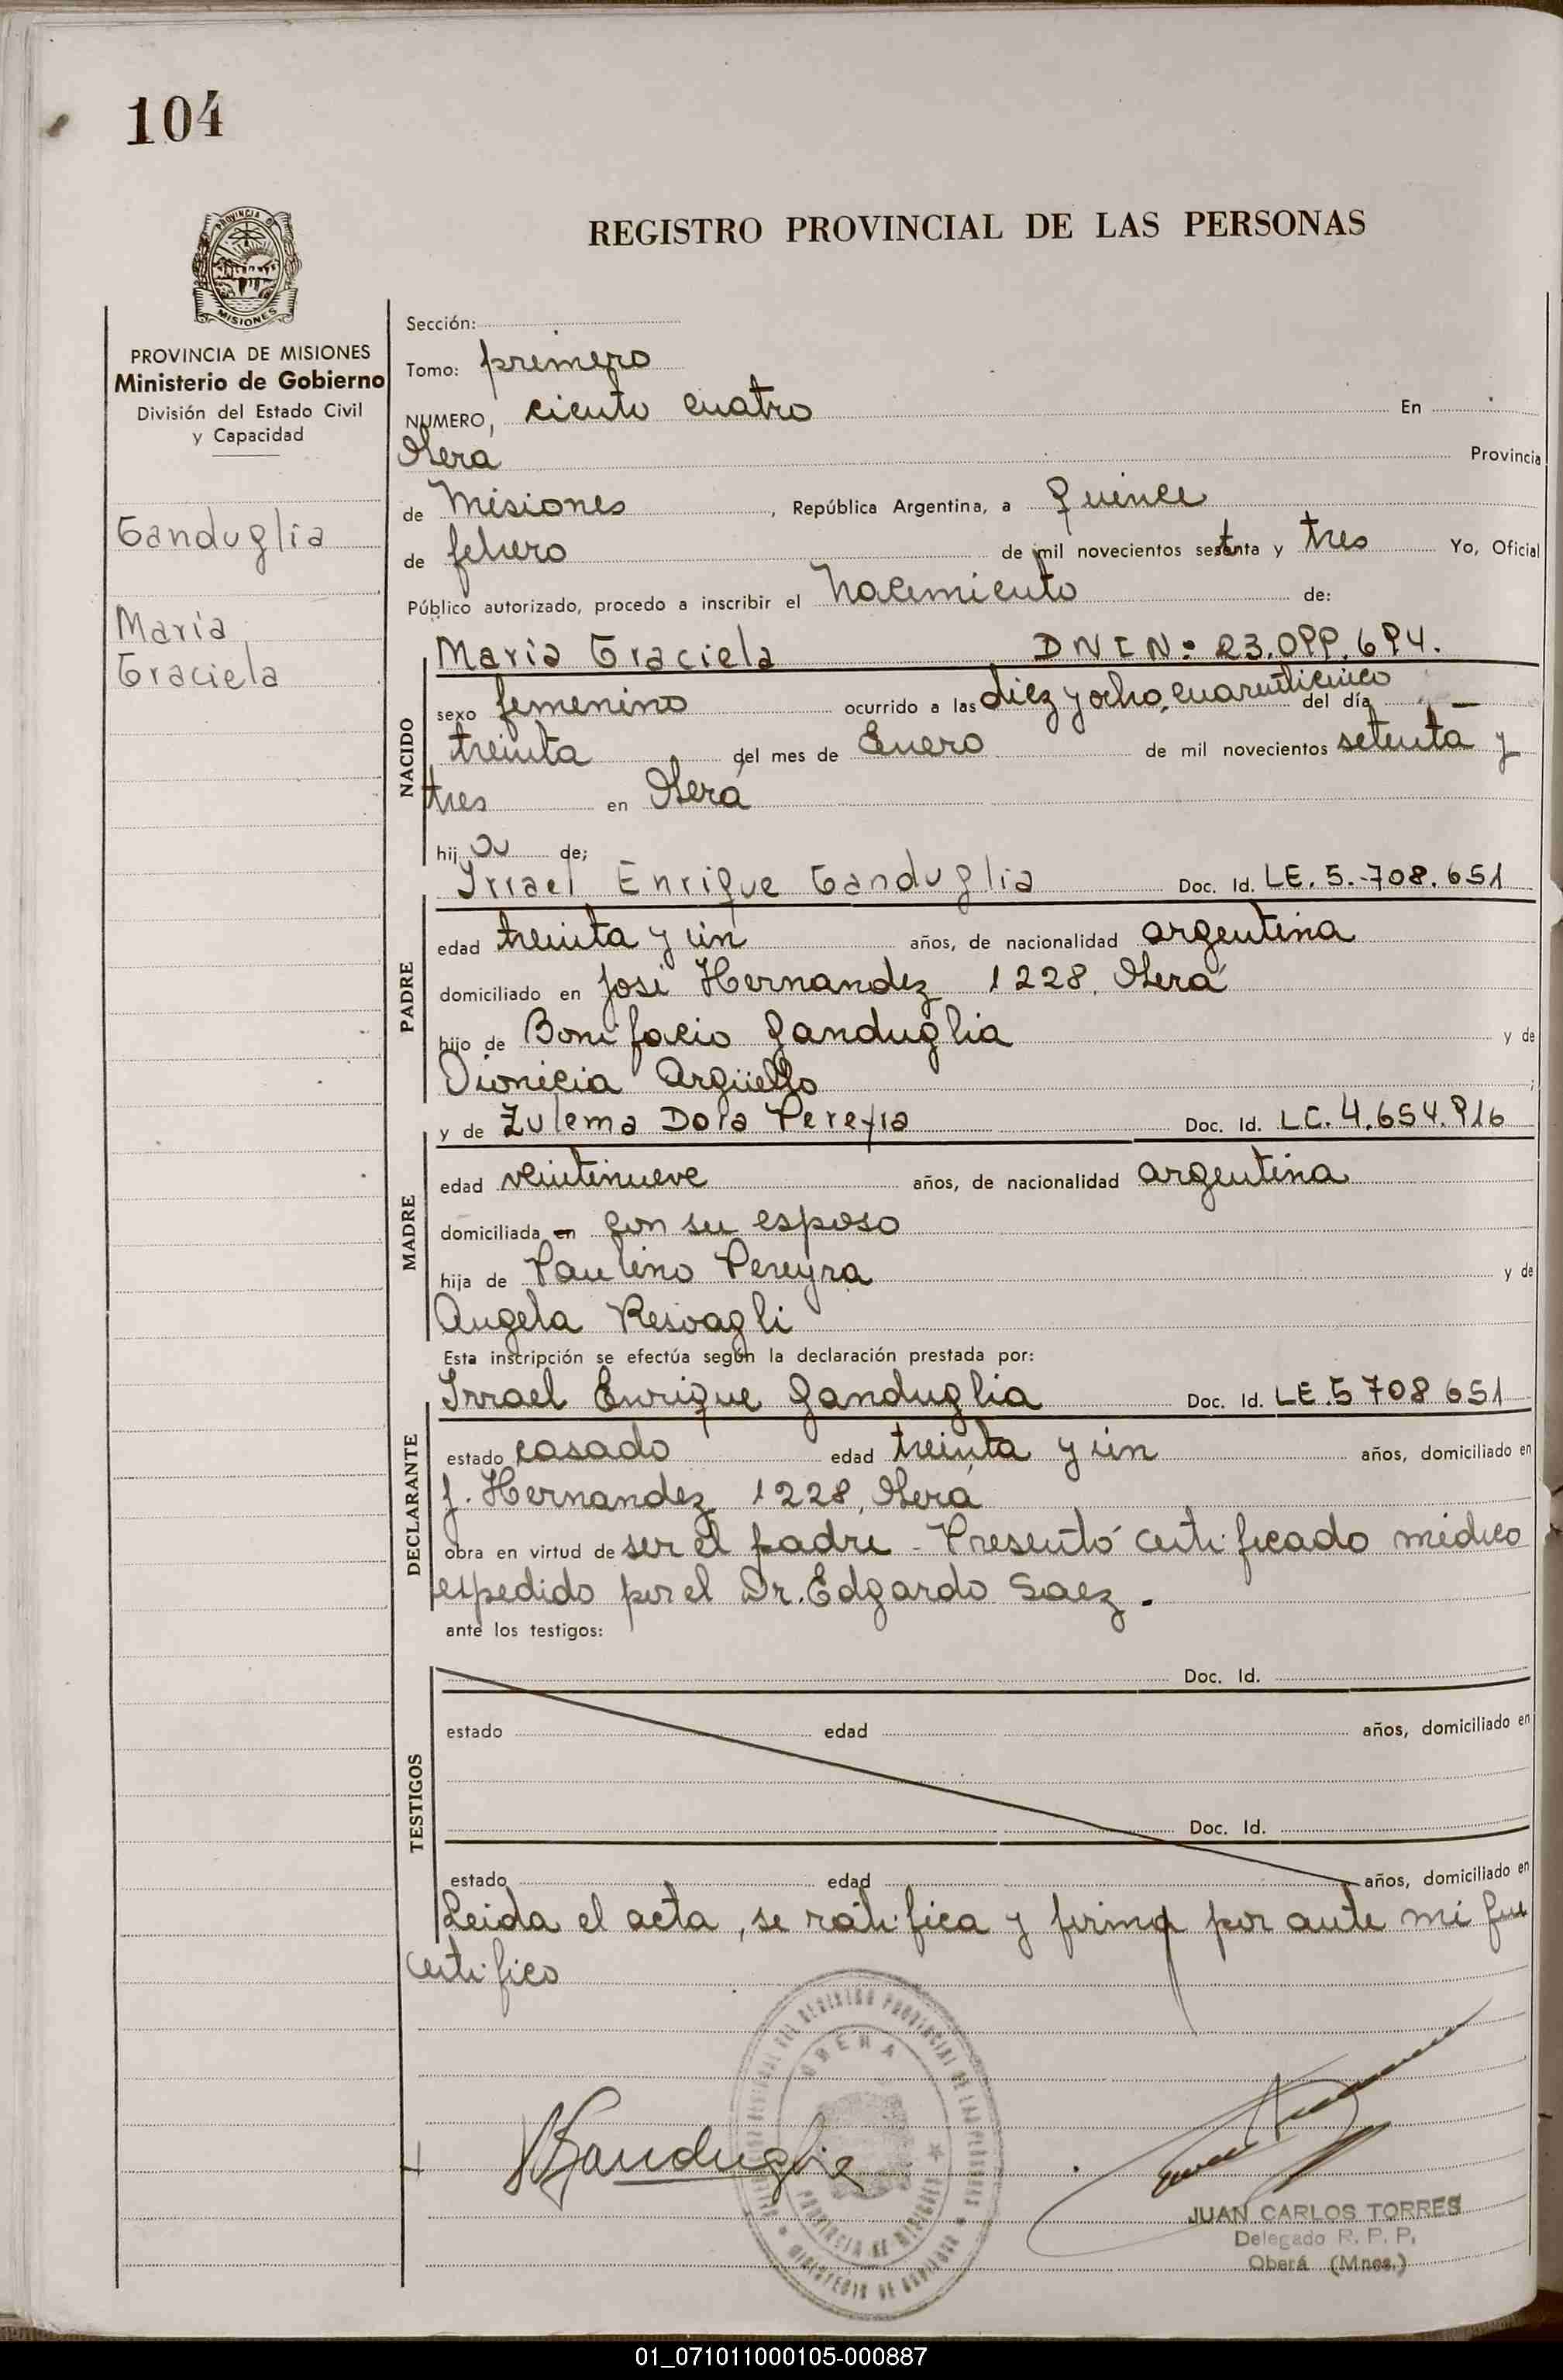 104
PROVINCIA DE
MISIONES
REGISTRO PROVINCIAL DE LAS PERSONAS
PROVINCIA DE MISIONES
Ministerio de Gobierno
División del Estado Civil
y Capacidad
Ganduglia
María
Graciela
Sección:
Tomo: primero
NUMERO, ciento cuatro En
Oberá Provincia
de Misiones, República Argentina, a quince
de febrero de mil novecientos setenta y tres Yo, Oficial
Público autorizado, procedo a inscribir el nacimiento de:
NACIDO
María Graciela DNI Nº 23.099.694.
sexo femenino ocurrido a las diez y ocho, cuarenticinco del día
treinta del mes de Enero de mil novecientos setenta y
tres en Oberá
hija de;
PADRE
Irrael Enrique Ganduglia Doc. Id. LE. 5.708.651
edad treinta y un años, de nacionalidad argentina
domiciliado en José Hernandez 1228, Oberá
hijo de Bonifacio Ganduglia y de
Dionicia Argüello;
MADRE
y de Zulema Dora Pereyra Doc. Id. LC. 4.654.916
edad veintinueve años, de nacionalidad argentina
domiciliada en con su esposo
hija de Paulino Pereyra y de
Angela Resvagli
Esta inscripción se efectúa según la declaración prestada por:
DECLARANTE
Irrael Enrique Ganduglia Doc. Id. LE. 5 708 651
estado casado edad treinta y un años, domiciliado en
J. Hernandez 1228, Oberá
obra en virtud de ser el padre - Presentó certificado médico
espedido por el Dr. Edgardo Saez.
ante los testigos:
TESTIGOS
Doc. Id.
estado edad años, domiciliado en
Doc. Id.
estado edad años, domiciliado en
Leida el acta, se ratifica y firma por ante mi que
certifico
Ganduglia
REGISTRO PROVINCIAL DE LAS PERSONAS
OBERA
PROVINCIA DE MISIONES
MINISTERIO DE GOBIERNO
JUAN CARLOS TORRES
Delegado R. P. P.
Oberá (Mnes.)
01_071011000105-000887